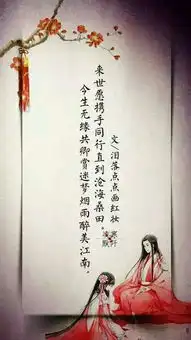 今生无缘共卿赏迷梦烟雨醉美江南，
来世愿携手同行直到沧海桑田。
文〈泪落点点画红妆